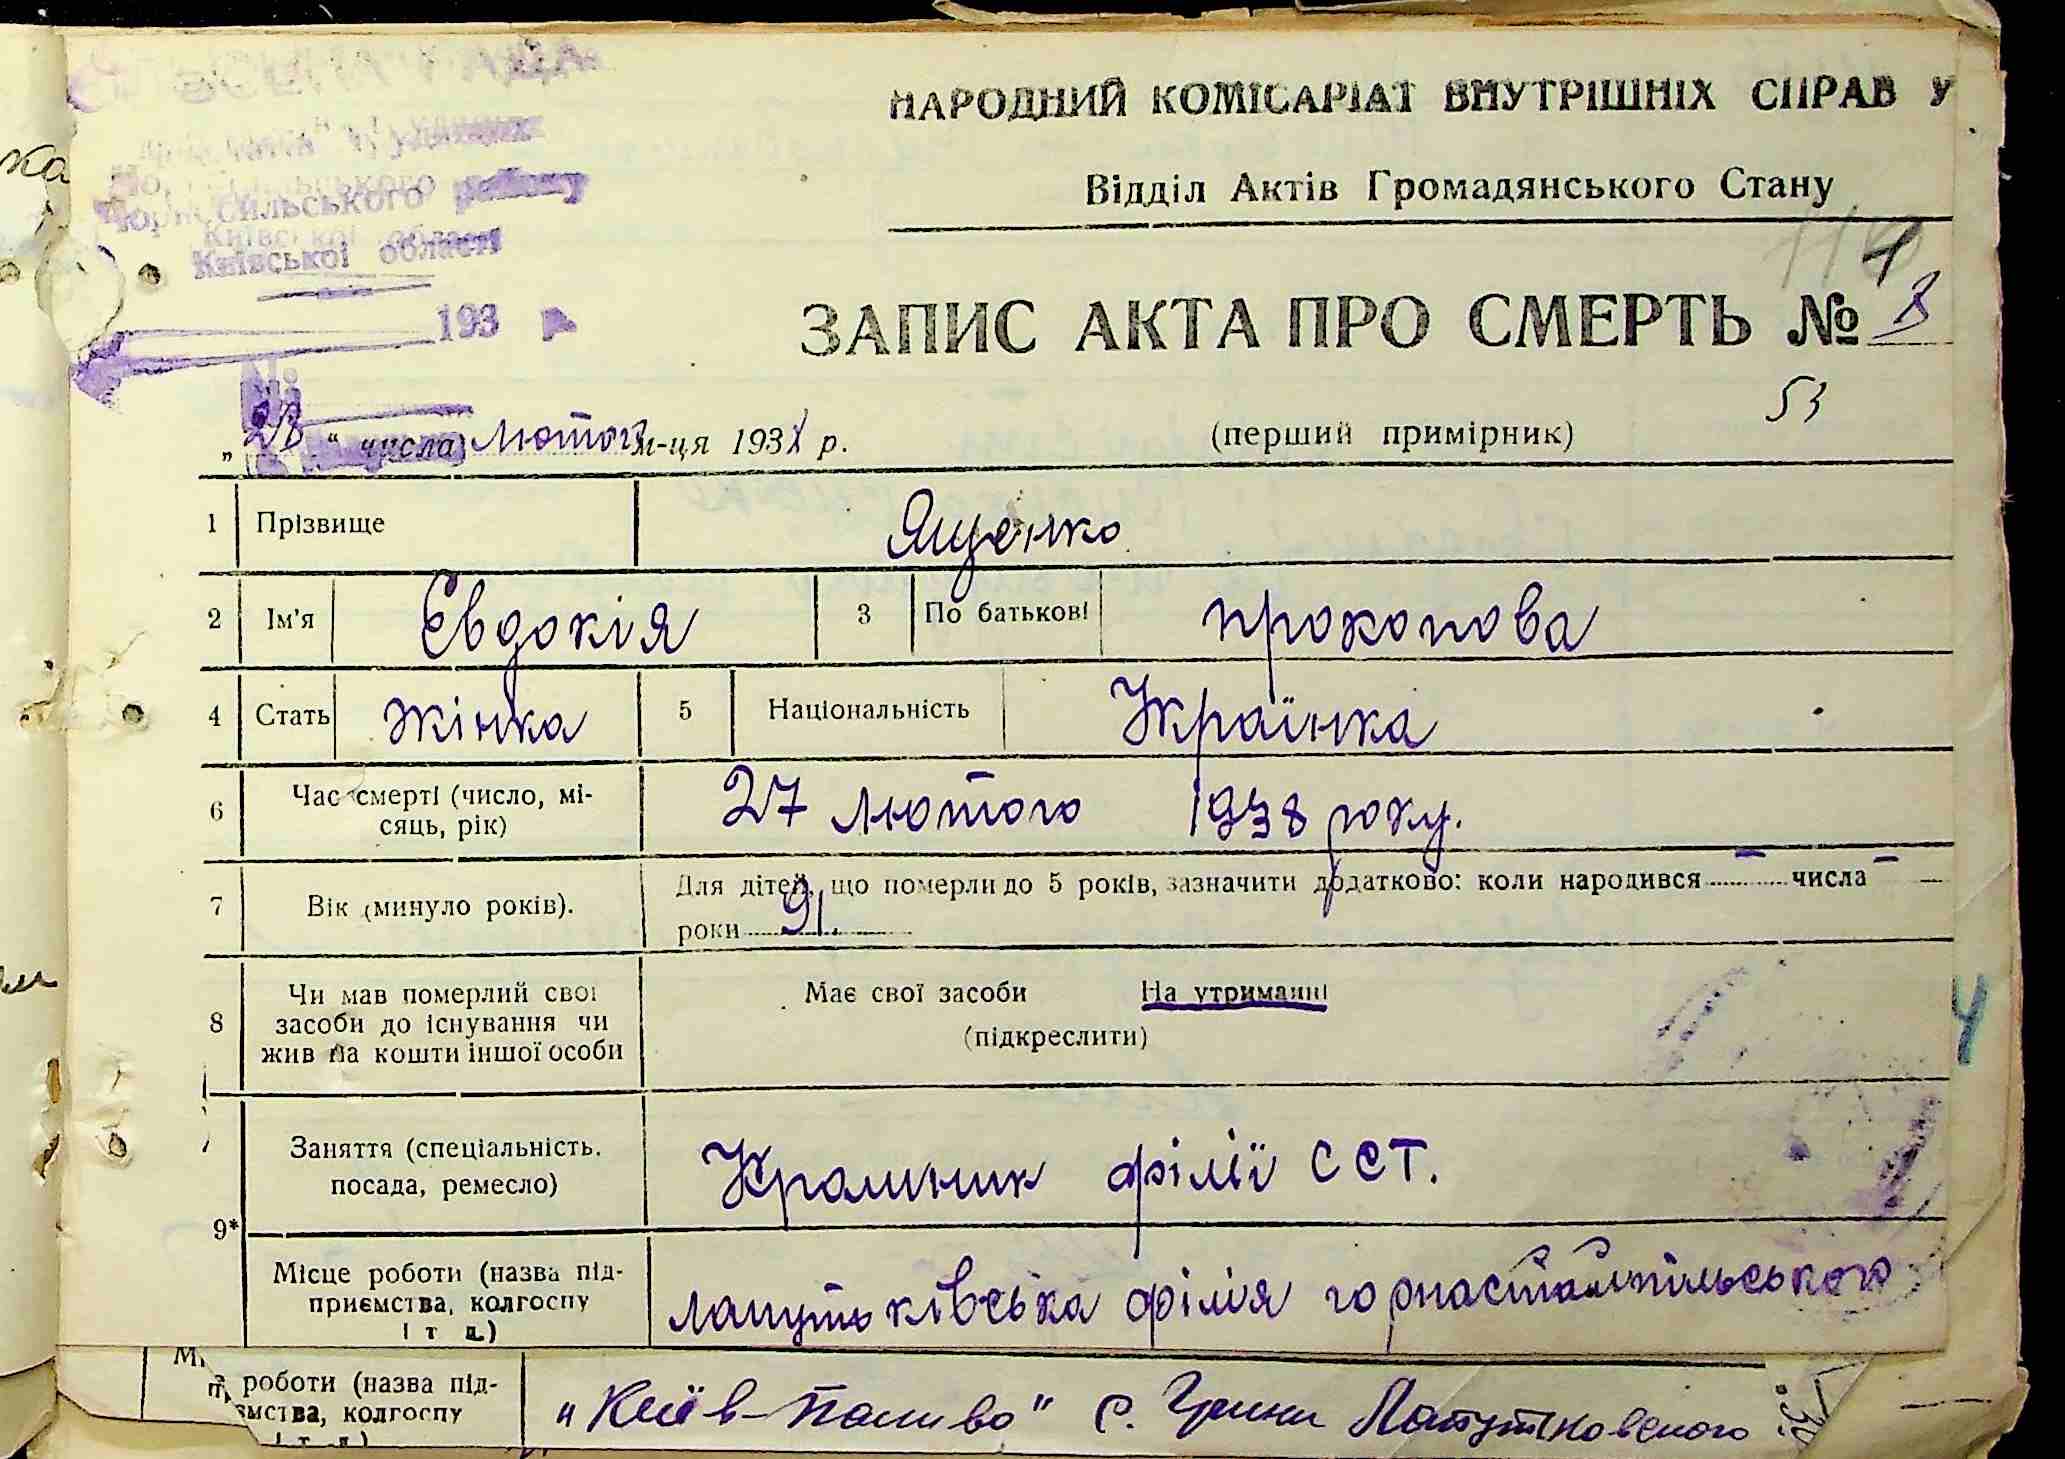 ка
НАРОДНИЙ КОМІСАРІАТ ВНУТРІШНІХ СПРАВ У
Відділ Актів Громадянського Стану
району
Київської області
193
ЗАПИС АКТА ПРО СМЕРТЬ № 3
53
„28" числа лютого м-ця 193 р. (перший примірник)
1 Прізвище Ященко
2 Ім'я Євдокія 3 По батькові прокопова
4 Стать жінка 5 Національність Українка
6 Час смерті (число, мі-
сяць, рік) 27 лютого 1938 року.
7 Вік (минуло років). Для дітей, що померли до 5 років, зазначити додатково: коли народився — числа —
роки 91.
8 Чи мав померлий свої
засоби до існування чи
жив на кошти іншої особи
Має свої засоби На утриманні
(підкреслити)
4
9*
Заняття (спеціальність.
посада, ремесло) Крамник філії ССТ.
Місце роботи (назва під-
приємства, колгоспу
і т д.) лапутьківська філія горностайпільського
роботи (назва під-
ємства, колгоспу
і т. д.)
„Київ-Паливо" с.